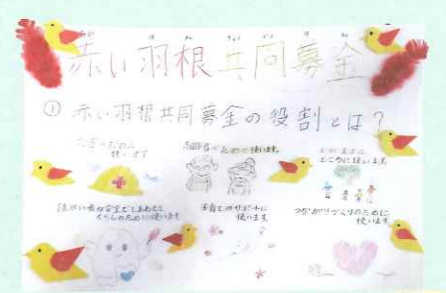 赤い羽根共同募金
① 赤い羽根共同募金の役割とは？
災害のために
使います
高齢者のために使います。
ところに使います。
障がい者の安全でしあわせな
くらしのために使います
子育てのサポートに
使います
つながりづくりのために
使います。